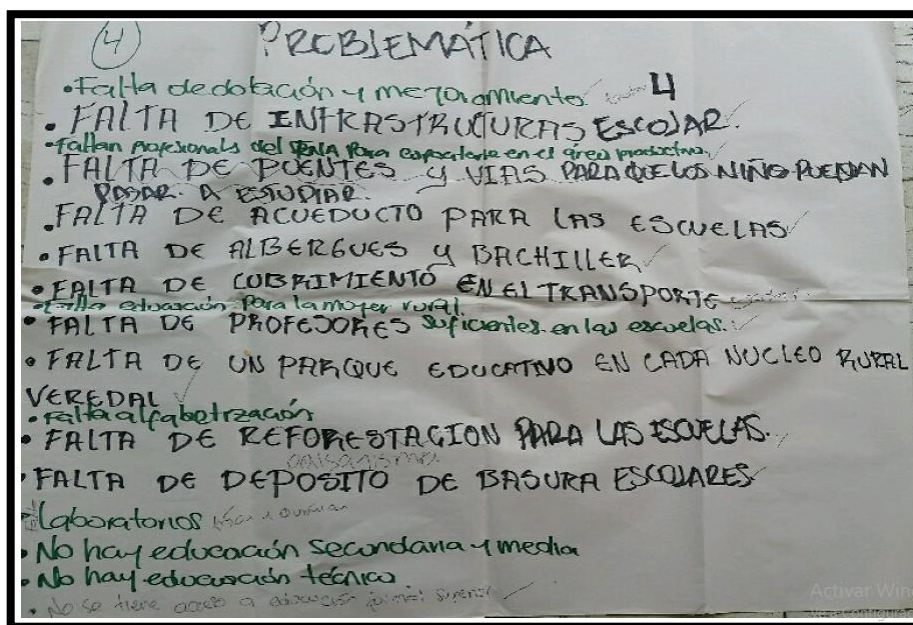 4 PROBLEMATICA
• Falta de dotación y mejoramiento 4
• FALTA DE INFRASTRUCTURAS ESCOLAR.
• faltan profesionals del SENA para capacitarla en el área productiva.
• FALTA DE PUENTES Y VIAS PARA QUE LOS NIÑO PUEDAN
PASAR. A ESTUDIAR.
• FALTA DE ACUEDUCTO PARA LAS ESCUELAS
• FALTA DE ALBERGUES Y BACHILLER
• FALTA DE CUBRIMIENTO EN EL TRANSPORTE
• Falta educación para la mujer rural.
• FALTA DE PROFESORES suficientes en las escuelas.
• FALTA DE UN PARQUE EDUCATIVO EN CADA NUCLEO RURAL
VEREDAL
• Falta alfabetización
• FALTA DE REFORESTACION PARA LAS ESCUELAS.
• FALTA DE DEPOSITO DE BASURA ESCOLARES
Laboratorios
• No hay educación secundaria y media
• No hay educación técnico.
• No se tiene acceso a educación superior
Activar Win